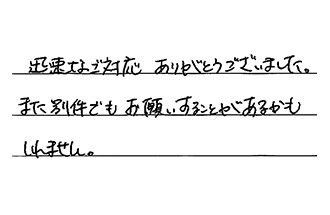 迅速なご対応 ありがとうございました。
また別件でも お願いすることがあるかも
しれません。